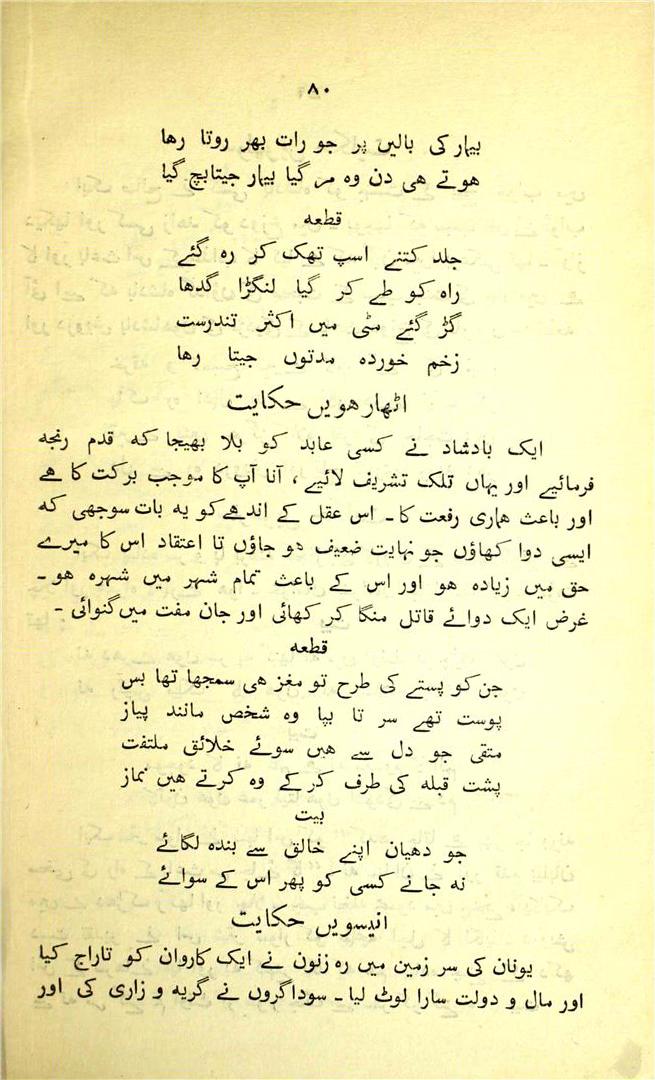 ۸۰
بیمار کی بالیں پر جو رات بھر روتا رھا
ھوتے ھی دن وہ مر گیا بیمار جیتا بچ گیا
قطعہ
جلد کتنے اسپ تھک کر رہ گئے
راہ کو طے کر گیا لنگڑا گدھا
گڑ گئے مٹی میں اکثر تندرست
زخم خوردہ مدتوں جیتا رھا
اٹھارھویں حکایت
ایک بادشاد نے کسی عابد کو بلا بھیجا کہ قدم رنجہ
فرمائیے اور یہاں تلک تشریف لائیے ، آنا آپ کا موجب برکت کا ھے
اور باعث ھماری رفعت کا ۔ اس عقل کے اندھے کو یہ بات سوجھی کہ
ایسی دوا کھاؤں جو نہایت ضعیف ھو جاؤں تا اعتقاد اس کا میرے
حق میں زیادہ ھو اور اس کے باعث تمام شہر میں شہرہ ھو ۔
غرض ایک دوائے قاتل منگا کر کھائی اور جان مفت میں گنوائی ۔
قطعہ
جن کو پستے کی طرح تو مغز ھی سمجھا تھا بس
پوست تھے سر تا بپا وہ شخص مانند پیاز
متقی جو دل سے ھیں سوئے خلائق ملتفت
پشت قبلہ کی طرف کر کے وہ کرتے ھیں نماز
بیت
جو دھیان اپنے خالق سے بندہ لگائے
نہ جانے کسی کو پھر اس کے سوائے
انیسویں حکایت
یونان کی سر زمین میں رہ زنوں نے ایک کاروان کو تاراج کیا
اور مال و دولت سارا لوٹ لیا ۔ سوداگروں نے گریہ و زاری کی اور